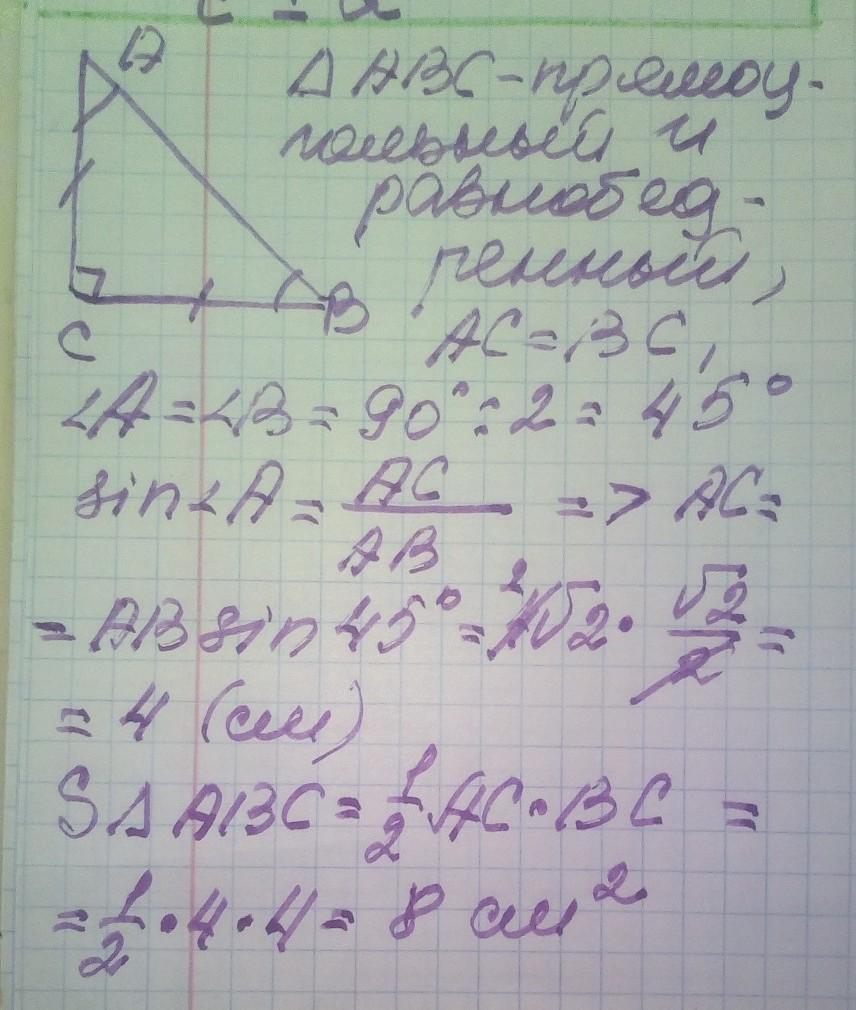 A
△ ABC - прямоу-
гольный и
равнобед-
ренный,
C
B
AC = BC,
∠A = ∠B = 90° : 2 = 45°
sin∠A = AC/AB => AC =
= AB sin 45° = 4√2 · √2/2 =
2
= 4 (см)
S△ABC = 1/2 AC · BC =
= 1/2 · 4 · 4 = 8 см²